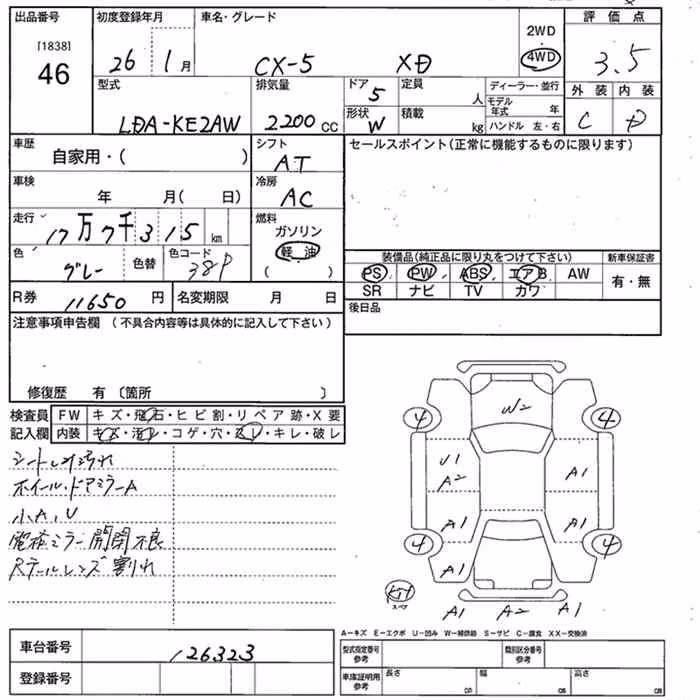 出品番号 初度登録年月 車名・グレード 2WD 評価点
[1838] 4WD
46 26 1月 CX-5 XD 3.5
外装 内装
型式 排気量 ドア 定員 ディーラー・並行
5 人 モデル年式 年
LDA-KE2AW 2200CC 形状 積載 C D
W kg ハンドル 左・右
車歴 シフト セールスポイント(正常に機能するものに限ります)
自家用・( ) AT
車検 冷房
年 月( 日) AC
走行 燃料
17万7千315km ガソリン
色 色替 色コード 軽油 装備品(純正品に限り丸をつけて下さい) 新車保証書
グレー 38P ( ) PS PW ABS エアB AW 有・無
SR ナビ TV カワ
R券 11650円 名変期限 月 日 後日品
注意事項申告欄 (不具合内容等は具体的に記入して下さい)
修復歴 有 〔箇所 〕
検査員 FW キズ・飛石・ヒビ割・リペア跡・X要
記入欄 内装 キズ・汚レ・コゲ・穴・スレ・キレ・破レ
シート上汚れ
ホイール・ドアミラーA
小A,U
電格ミラー開閉不良
Rテールレンズ割れ
4 W2 4
U1
A2 A1
A1 A1
4 4
A1 A1
スペア A1 A2 A1
A-キズ E-エクボ U-凹み W-補修跡 S-サビ C-腐食 XX-交換済
車台番号 126323
登録番号
型式指定番号 参考 類別区分番号 参考
車庫証明用 参考 長さ cm 幅 cm 高さ cm